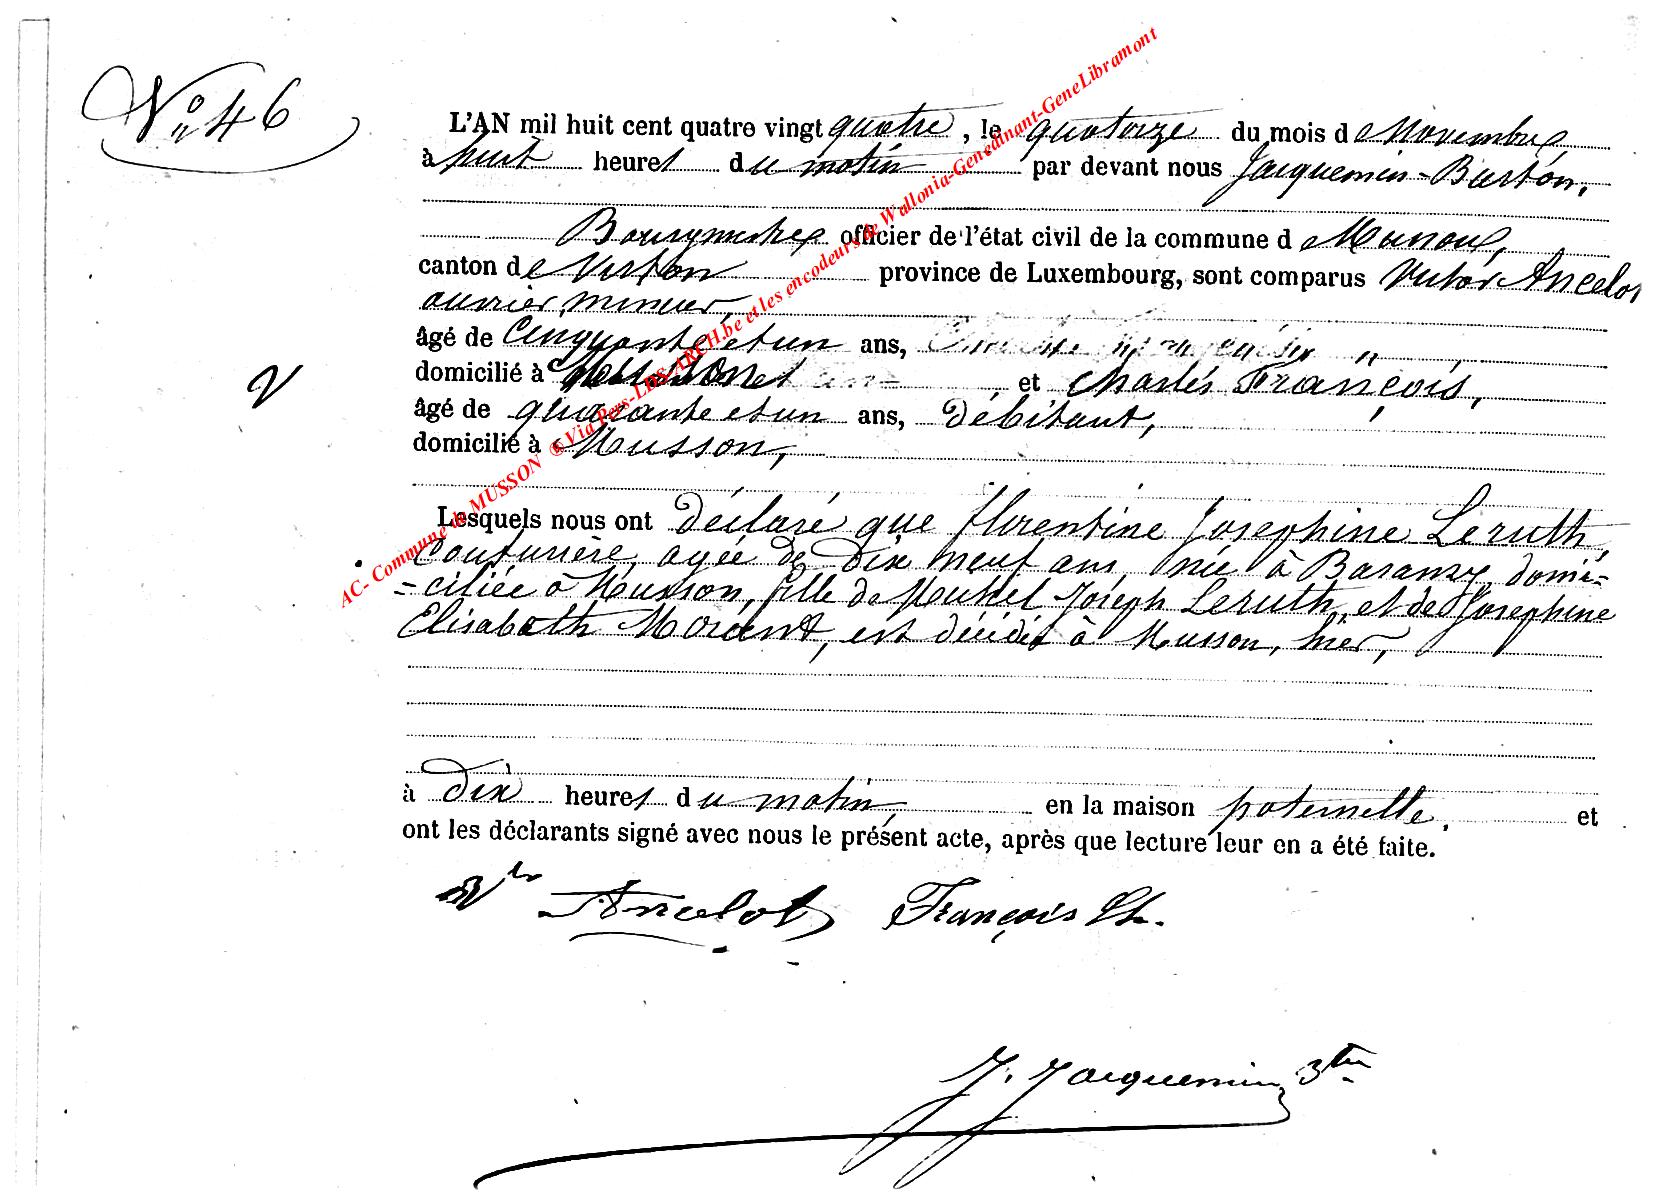 N° 46
L'AN mil huit cent quatre vingt quatre, le quatorze du mois de Novembre,
à huit heures du matin par devant nous Jacquemin-Burton,
Bourgmestre officier de l'état civil de la commune de Musson,
canton de Virton province de Luxembourg, sont comparus Victor Ancelot
ouvrier mineur,
âgé de Cinquante et un ans,
domicilié à et Charles François,
âgé de quarante et un ans, débitant,
domicilié à Musson,
Lesquels nous ont déclaré que Florentine Josephine Leruth,
couturière, agée de Dix neuf ans, née à Baranzy, domi=
=ciliée à Musson, fille de Michel Joseph Leruth, et de Josephine
Elisabeth Morant, est décédée à Musson, hier,
à Dix heures du matin, en la maison paternelle, et
ont les déclarants signé avec nous le présent acte, après que lecture leur en a été faite.
Ancelot François Ch.
J. Jacquemin
AC- Commune de MUSSON © Via Pers-LDS-ARCH.be et les encodeurs de Wallonia-Genedinant-GeneLibramont